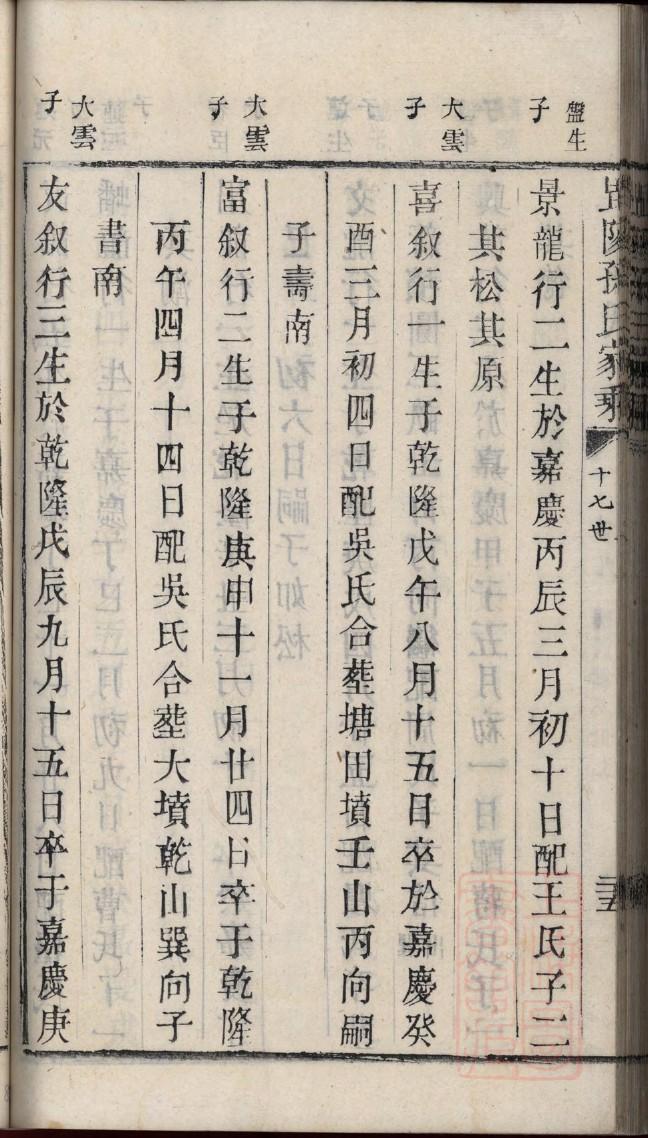 孫氏家乘
十七世
盤生
子
景龍行二生於嘉慶丙辰三月初十日配王氏子二
其松其原
大雲
子
喜叙行一生于乾隆戊午八月十五日卒於嘉慶癸
酉三月初四日配吳氏合塟塘田墳壬山丙向嗣
子壽南
大雲
子
富叙行二生于乾隆庚申十一月廿四日卒于乾隆
丙午四月十四日配吳氏合塟大墳乾山巽向子
書南
大雲
子
友叙行三生於乾隆戊辰九月十五日卒于嘉慶庚